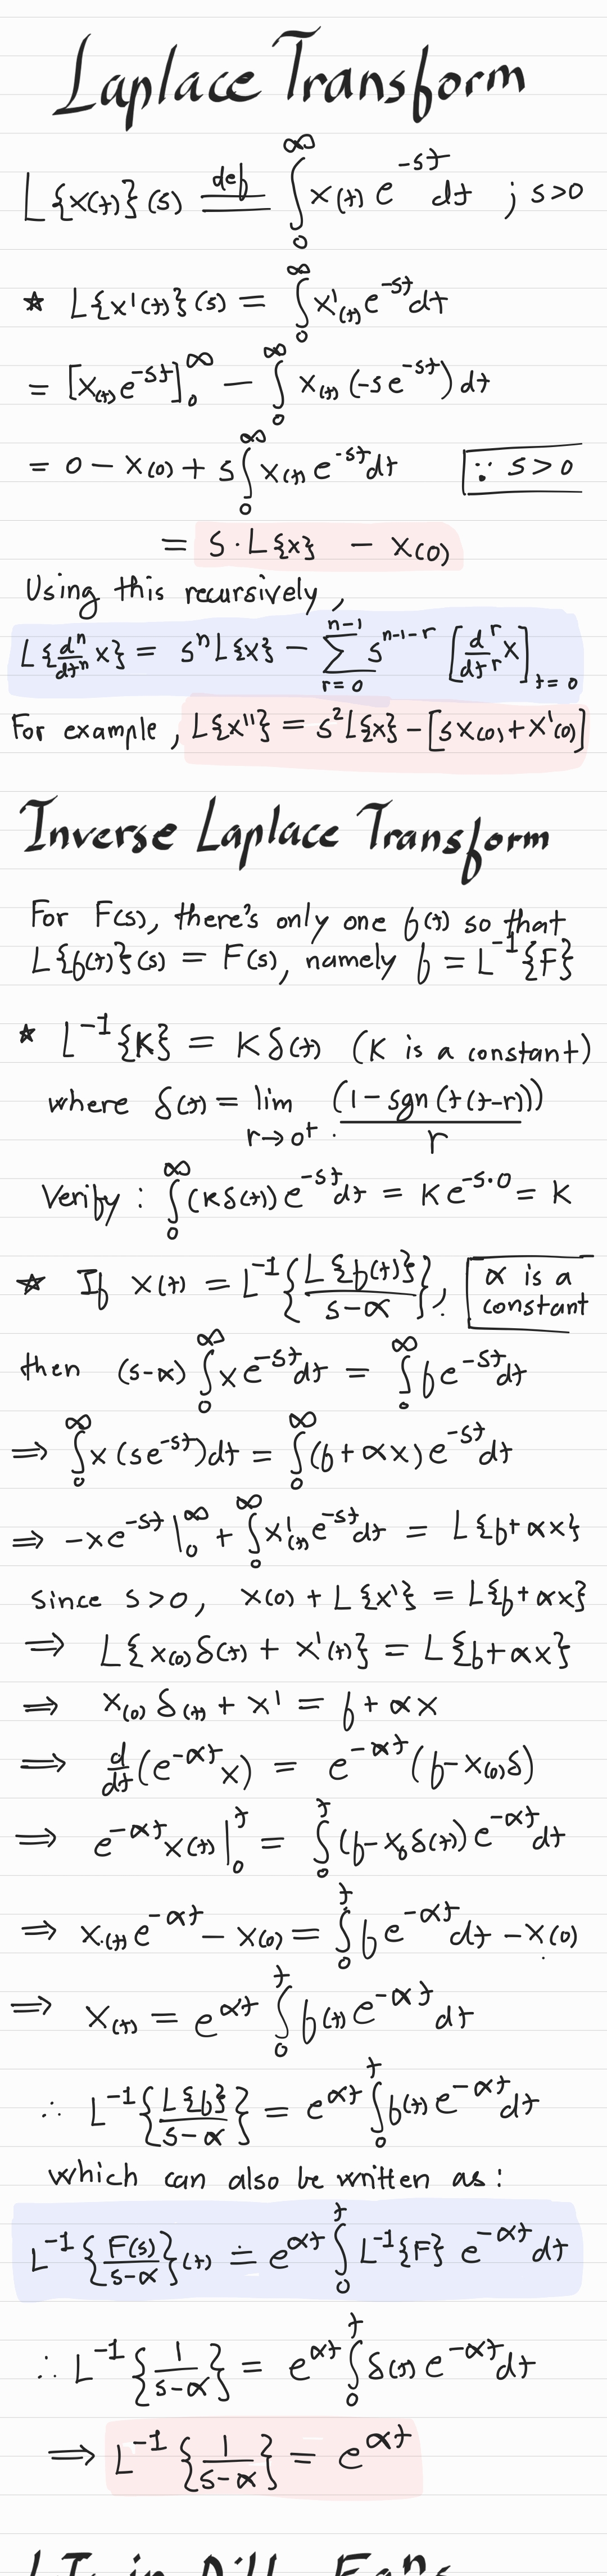 Laplace Transform
L{x(t)}(s) def= ∫₀^∞ x(t) e^{-st} dt ; s>0
☆ L{x'(t)}(s) = ∫₀^∞ x'(t) e^{-st} dt
= [x(t) e^{-st}]₀^∞ − ∫₀^∞ x(t) (-s e^{-st}) dt
= 0 − x(0) + s∫₀^∞ x(t) e^{-st} dt ∵ s>0
= s·L{x} − x(0)
Using this recursively,
L{dⁿ/dtⁿ x} = sⁿL{x} − Σ_{r=0}^{n-1} s^{n-1-r} [d^r/dt^r x]_{t=0}
For example, L{x''} = s²L{x} − [s x(0) + x'(0)]
Inverse Laplace Transform
For F(s), there's only one f(t) so that
L{f(t)}(s) = F(s), namely f = L⁻¹{F}
☆ L⁻¹{K} = K δ(t) (K is a constant)
where δ(t) = lim_{r→0⁺} (1 − sgn(t(t-r)))/r
Verify : ∫₀^∞ (Kδ(t)) e^{-st} dt = K e^{-s·0} = K
☆ If x(t) = L⁻¹{L{f(t)}/(s-α)}, α is a constant
then (s-α) ∫₀^∞ x e^{-st} dt = ∫₀^∞ f e^{-st} dt
⇒ ∫₀^∞ x (s e^{-st}) dt = ∫₀^∞ (f + αx) e^{-st} dt
⇒ -x e^{-st} |₀^∞ + ∫₀^∞ x'(t) e^{-st} dt = L{f+αx}
since s>0, x(0) + L{x'} = L{f+αx}
⇒ L{x(0) δ(t) + x'(t)} = L{f+αx}
⇒ x(0) δ(t) + x' = f + αx
⇒ d/dt (e^{-αt} x) = e^{-αt} (f − x(0)δ)
⇒ e^{-αt} x(t) |₀^t = ∫₀^t (f − x₀ δ(t)) e^{-αt} dt
⇒ x(t) e^{-αt} − x(0) = ∫₀^t f e^{-αt} dt − x(0)
⇒ x(t) = e^{αt} ∫₀^t f(t) e^{-αt} dt
∴ L⁻¹{L{f}/(s-α)} = e^{αt} ∫₀^t f(t) e^{-αt} dt
which can also be written as :
L⁻¹{F(s)/(s-α)}(t) = e^{αt} ∫₀^t L⁻¹{F} e^{-αt} dt
∴ L⁻¹{1/(s-α)} = e^{αt} ∫₀^t δ(t) e^{-αt} dt
⇒ L⁻¹{1/(s-α)} = e^{αt}